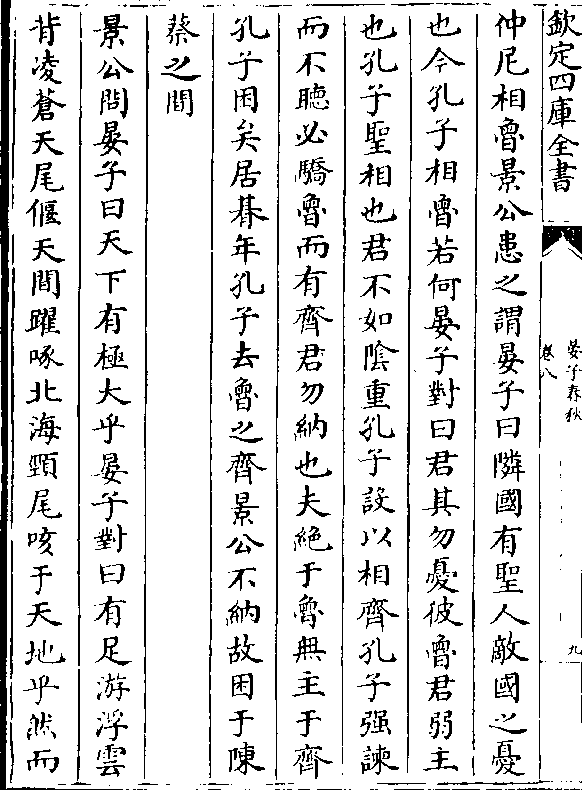 欽定四庫全書
晏子春秋
卷八
九
仲尼相魯景公患之謂晏子曰隣國有聖人敵國之憂
也今孔子相魯若何晏子對曰君其勿憂彼魯君弱主
也孔子聖相也君不如陰重孔子設以相齊孔子强諫
而不聽必驕魯而有齊君勿納也夫絶于魯無主于齊
孔子困矣居朞年孔子去魯之齊景公不納故困于陳
蔡之間
景公問晏子曰天下有極大乎晏子對曰有足游浮雲
背凌蒼天尾偃天間躍啄北海頸尾咳于天地乎然而